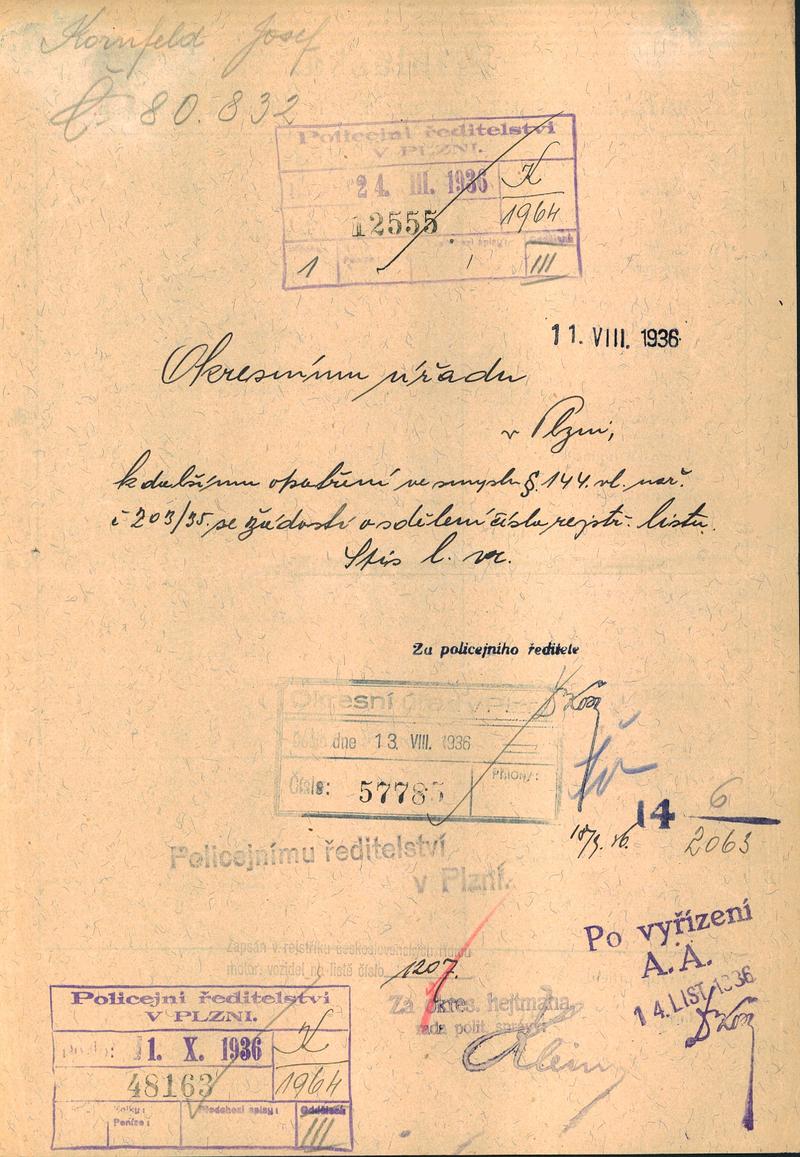 Kornfeld Josef
Č 80.832
Policejní ředitelství
V PLZNI.
24. III. 1936
K
12555
1964
1
III
11. VIII. 1936
Okresnímu úřadu
v Plzni,
k dalšímu opatření ve smyslu §. 144. vl. nař.
č 203/35. se žádostí o sdělení čísla rejstř. listu.
Za policejního ředitele
Okresní úřad v Plzni
dne 13. VIII. 1936
Číslo: 57785
Přílohy:
14
6
2063
Policejnímu ředitelství
v Plzni.
Zapsán v rejstříku československých
motor. vozidel na listě číslo 1207.
Po vyřízení
A. A.
14. LIST. 1936
Za okres. hejtmana
rada polit. správy:
Klein
Policejní ředitelství
V PLZNI.
Došlo: 1. X. 1936
K
48163
1964
Kolky:
Peníze:
Předchozí spisy:
Oddělení
III